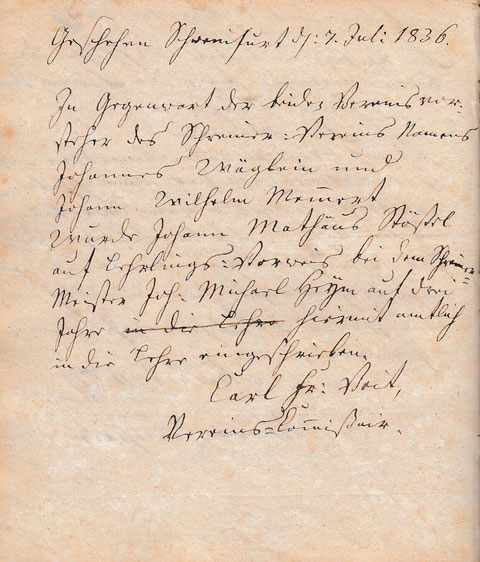 Geschehen Schweinfurt d: 7. Juli 1836.
In Gegenwart der beiden Vereinsvor-
steher des Schreiner-Vereins Namens
Johannes Wäglein und
Johann Wilhelm Memmert
wurde Johann Mathäus Stößel
auf Lehrlings-Vorweis bei dem Schreiner-
Meister Joh: Michael Heym auf drei
Jahre in die Lehre hiermit amtlich
in die Lehre eingeschrieben.
Carl Fr: Voit,
Vereins-Commißair.